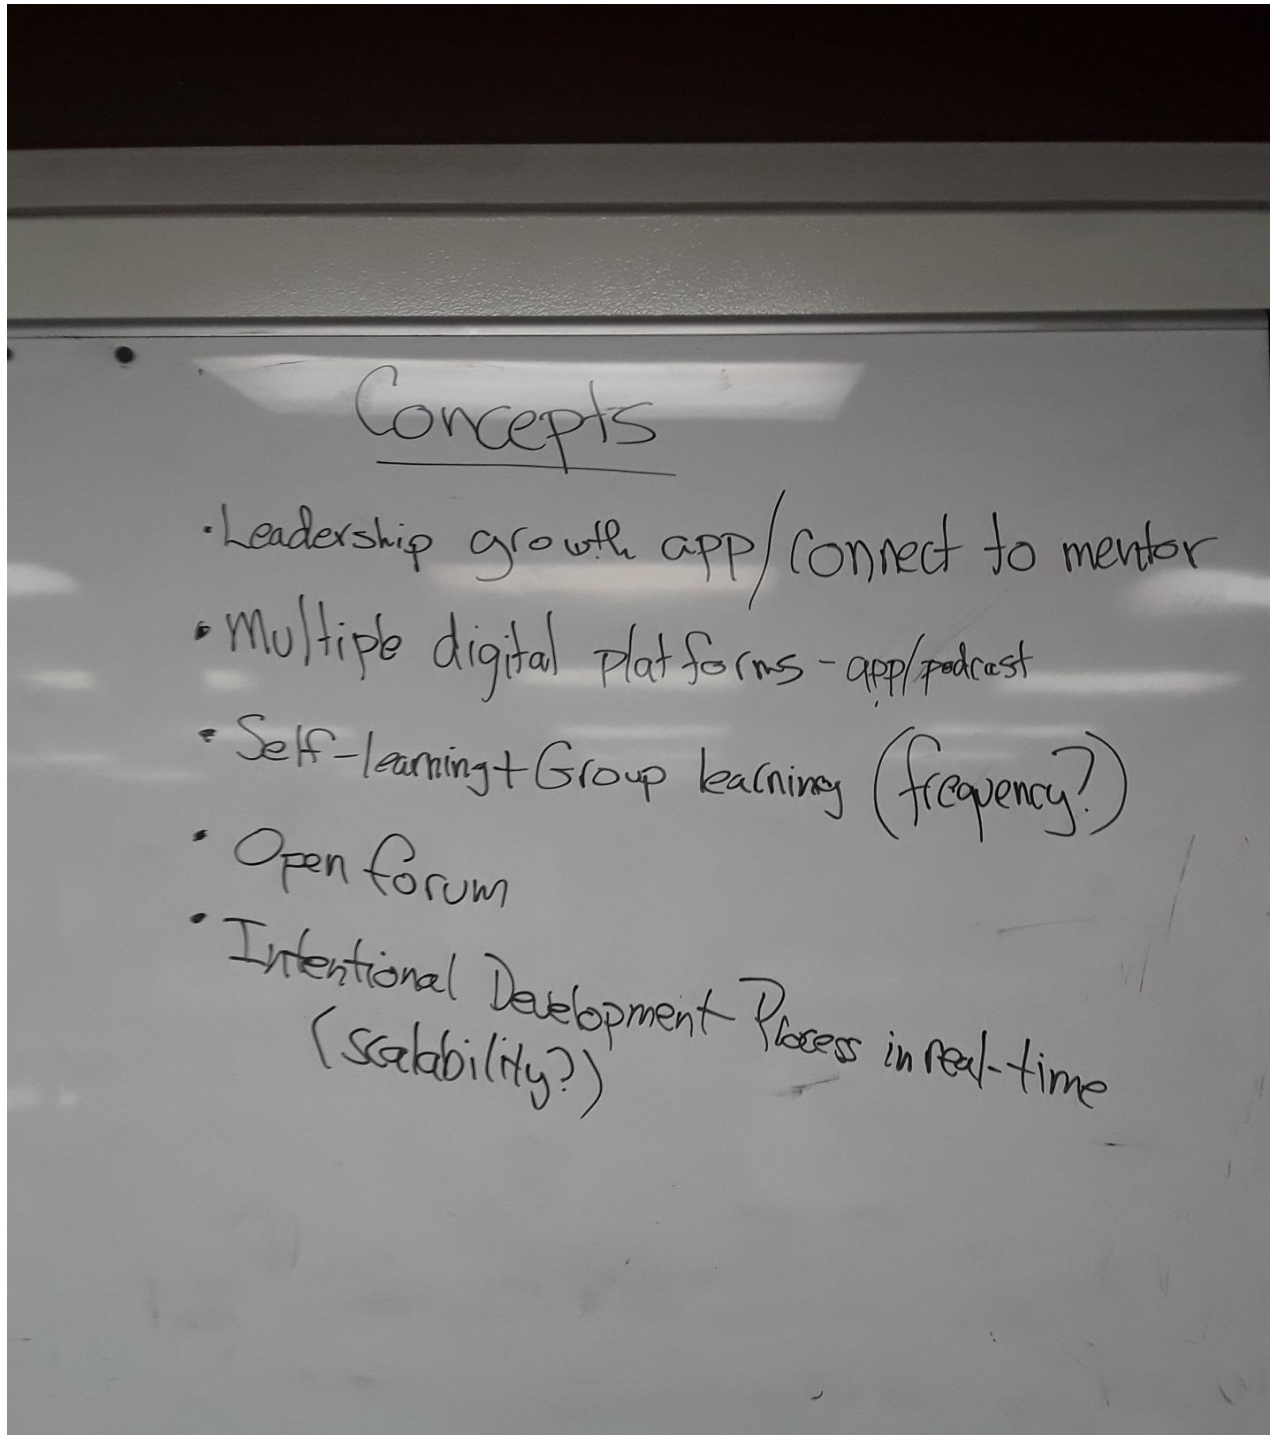 Concepts
· Leadership growth app/connect to mentor
· Multiple digital platforms - app/podcast
· Self-learning + Group learning (frequency?)
· Open forum
· Intentional Development Process in real-time
(scalability?)